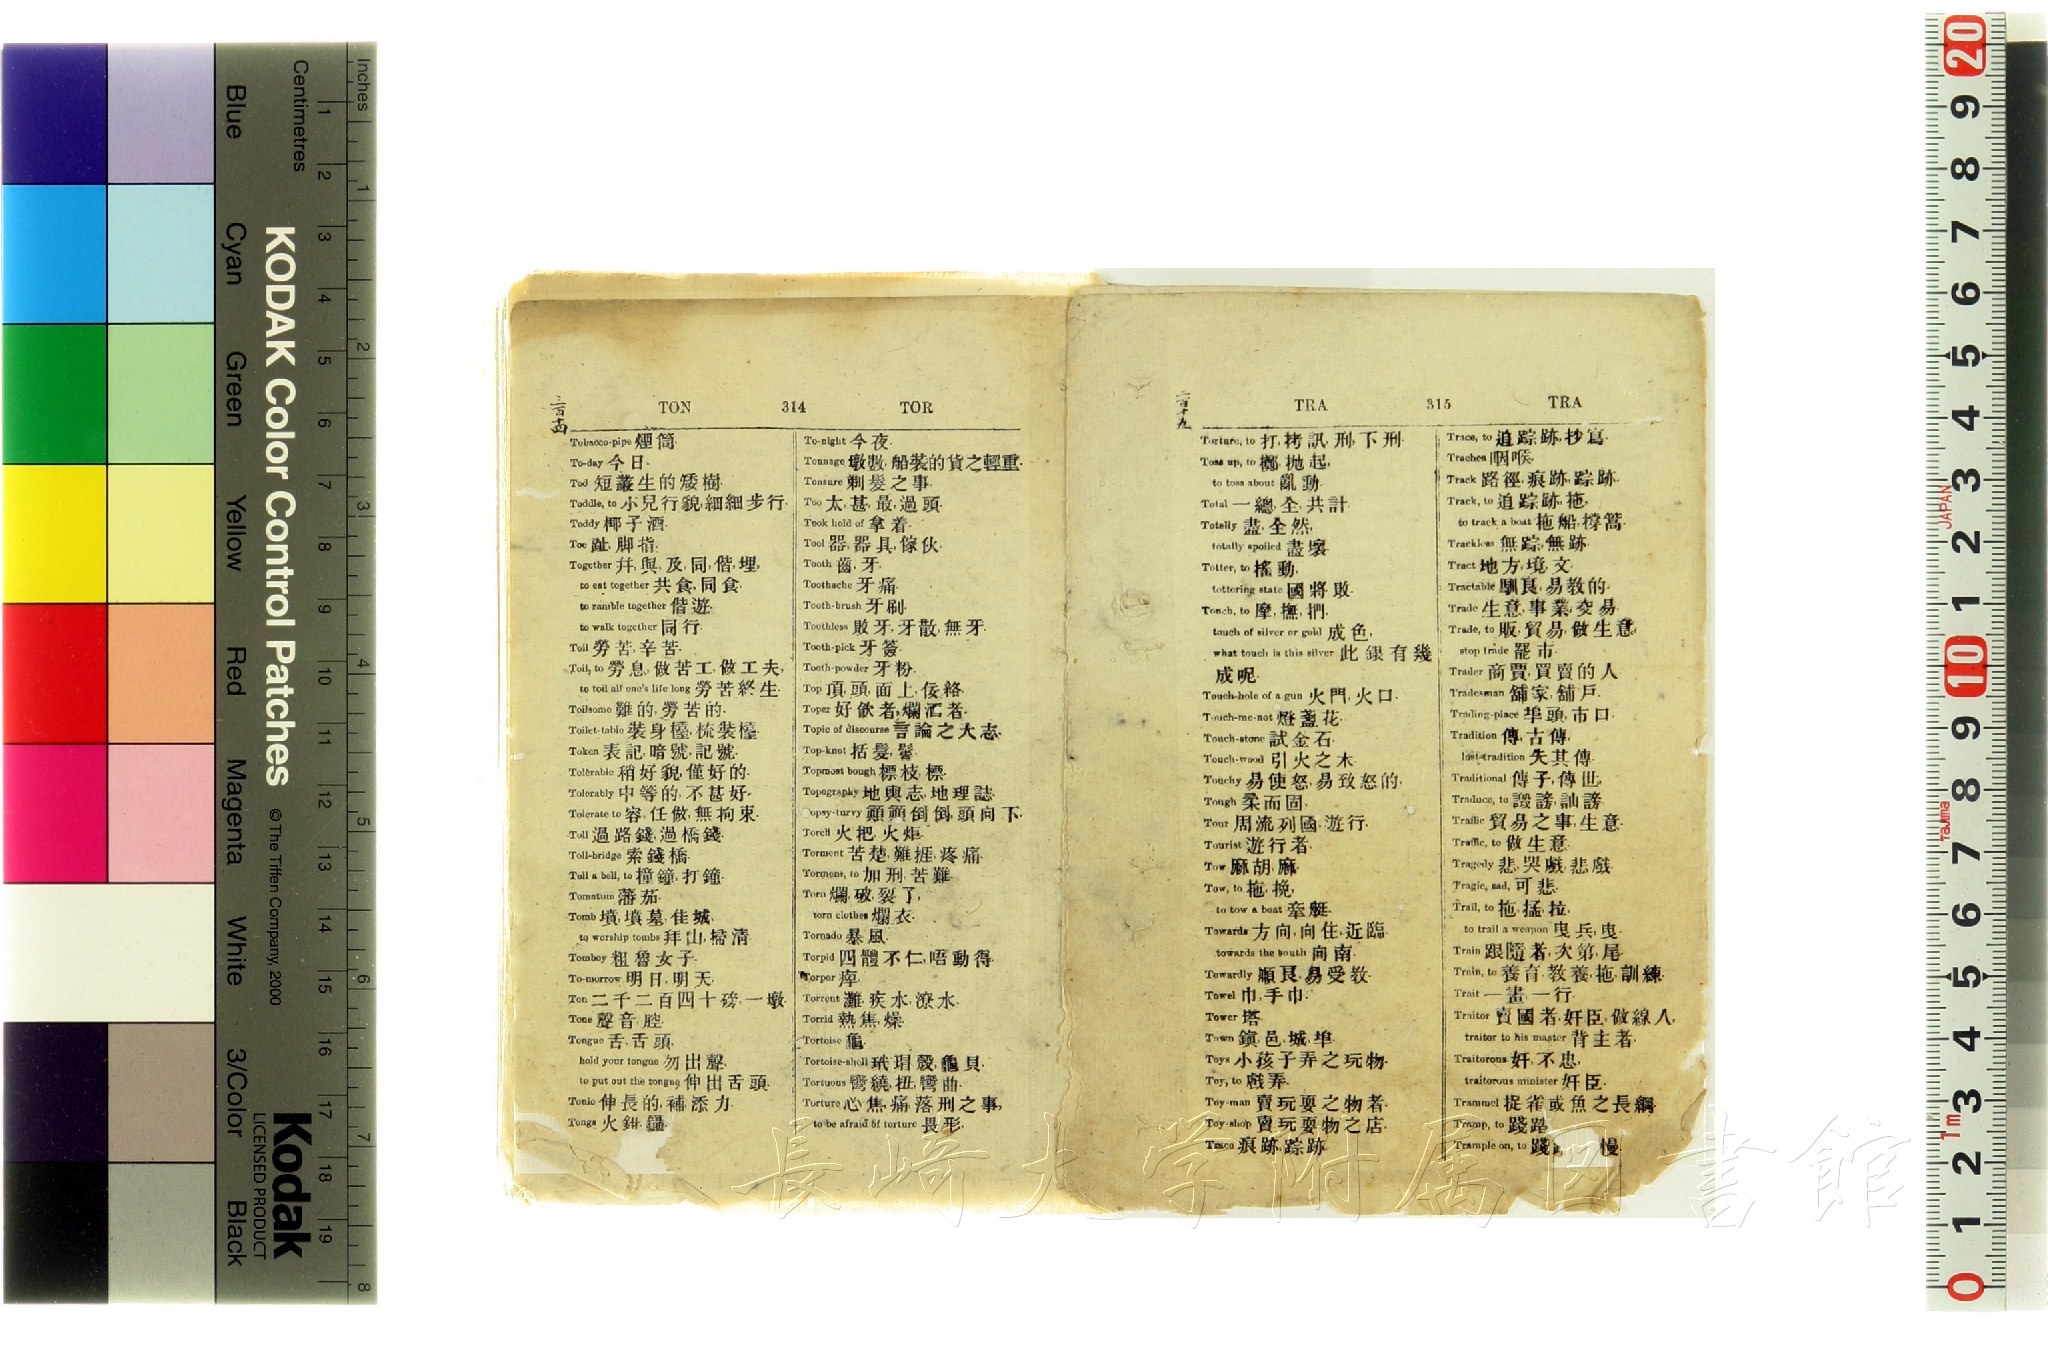 Blue
Cyan
Green
Yellow
Red
Magenta
White
3/Color
Black
Centimetres
Inches
KODAK Color Control Patches
© The Tiffen Company, 2000
Kodak
LICENSED PRODUCT
TON 314 TOR
Tobacco-pipe 煙筒.
To-day 今日.
Tod 短叢生的矮樹.
Toddle, to 小兒行貌,細細步行.
Toddy 椰子酒.
Toe 趾,脚指.
Together 幷,與,及,同,偕,埋,
to eat together 共食,同食.
to ramble together 偕遊.
to walk together 同行.
Toil 勞苦,辛苦.
Toil, to 勞息,做苦工,做工夫,
to toil all one's life long 勞苦終生.
Toilsome 難的,勞苦的.
Toilet-table 裝身檯,梳裝檯.
Token 表記,暗號,記號.
Tolerable 稍好貌,僅好的.
Tolerably 中等的,不甚好.
Tolerate to 容,任做,無拘束.
Toll 過路錢,過橋錢.
Toll-bridge 索錢橋.
Toll a bell, to 撞鐘,打鐘.
Tomatum 蕃茄.
Tomb 墳,墳墓,佳城,
to worship tombs 拜山,掃清.
Tomboy 粗魯女子.
To-morrow 明日,明天.
Ton 二千二百四十磅,一墩.
Tone 聲音,腔.
Tongue 舌,舌頭,
hold your tongue 勿出聲.
to put out the tongue 伸出舌頭.
Tonic 伸長的,補添力.
Tongs 火鉗,鑷.
To-night 今夜.
Tonnage 墩數,船裝的貨之輕重.
Tonsure 剃髮之事.
Too 太,甚,最,過頭.
Took hold of 拿着.
Tool 器,器具,傢伙.
Tooth 齒,牙.
Toothache 牙痛.
Tooth-brush 牙刷.
Toothless 敗牙,牙散,無牙.
Tooth-pick 牙簽.
Tooth-powder 牙粉.
Top 頂,頭,面上
Toper 好飲者,爛酒者.
Topic of discourse 言論之大志.
Top-knot 括髮,髻.
Topmost bough 標枝,標.
Topography 地輿志,地理誌.
Topsy-turvy 顚顚倒倒,頭向下.
Torch 火把,火炬.
Torment 苦楚,難捱,疼痛.
Torment, to 加刑,苦難.
Torn 爛,破,裂了,
torn clothes 爛衣.
Tornado 暴風.
Torpid 四體不仁,唔動得.
Torpor 痺.
Torrent 灘,疾水,潦水.
Torrid 熱,焦,燥.
Tortoise 龜.
Tortoise-shell 玳瑁殼,龜貝.
Tortuous 彎繞,扭,彎曲.
Torture 心焦,痛,落刑之事,
to be afraid of torture 畏形.
TRA 315 TRA
Torture, to 打,拷訊,刑,下刑.
Toss up, to 擲,抛起,
to toss about 亂動.
Total 一總,全,共計.
Totally 盡,全然,
totally spoiled 盡壞.
Totter, to 搖動,
tottering state 國將敗.
Touch, to 摩,撫,捫.
touch of silver or gold 成色,
what touch is this silver 此銀有幾
成呢.
Touch-hole of a gun 火門,火口.
Touch-me-not 燈盞花.
Touch-stone 試金石.
Touch-wood 引火之木.
Touchy 易使怒,易致怒的.
Tough 柔而固.
Tour 周流列國,遊行.
Tourist 遊行者.
Tow 麻,胡麻.
Tow, to 拖,挽,
to tow a boat 牽艇.
Towards 方向,向住,近臨.
towards the south 向南.
Towardly 順良,易受敎.
Towel 巾,手巾.
Tower 塔.
Town 鎭,邑,城,埠.
Toys 小孩子弄之玩物.
Toy, to 戲弄.
Toy-man 賣玩耍之物者.
Toy-shop 賣玩耍物之店.
Trace 痕跡,踪跡.
Trace, to 追踪跡,抄寫.
Trachea 咽喉.
Track 路徑,痕跡,踪跡.
Track, to 追踪跡,拖,
to track a boat 拖船,撑篙.
Trackless 無踪,無跡.
Tract 地方,境,文.
Tractable 馴良,易教的.
Trade 生意,事業,交易.
Trade, to 販,貿易,做生意,
stop trade 罷市.
Trader 商賈,買賣的人.
Tradesman 舖家,舖戶.
Trading-place 埠頭,市口.
Tradition 傳,古傳,
lost tradition 失其傳.
Traditional 傳子,傳世.
Traduce, to 毀謗,訕謗.
Traffic 貿易之事,生意.
Traffic, to 做生意.
Tragedy 悲,哭戲,悲戲.
Tragic, sad, 可悲.
Trail, to 拖,猛拉,
to trail a weapon 曳兵,曳.
Train 跟隨者,次第,尾.
Train, to 養育,教養,拖,訓練.
Trait 一畫,一行.
Traitor 賣國者,奸臣,做線人,
traitor to his master 背主者.
Traitorous 奸,不忠,
traitorous minister 奸臣.
Trammel 捉雀或魚之長網.
Tramp, to 踐踏.
Trample on, to 踐 慢.
長崎大学附属図書館
JAPAN
Tajima
1m